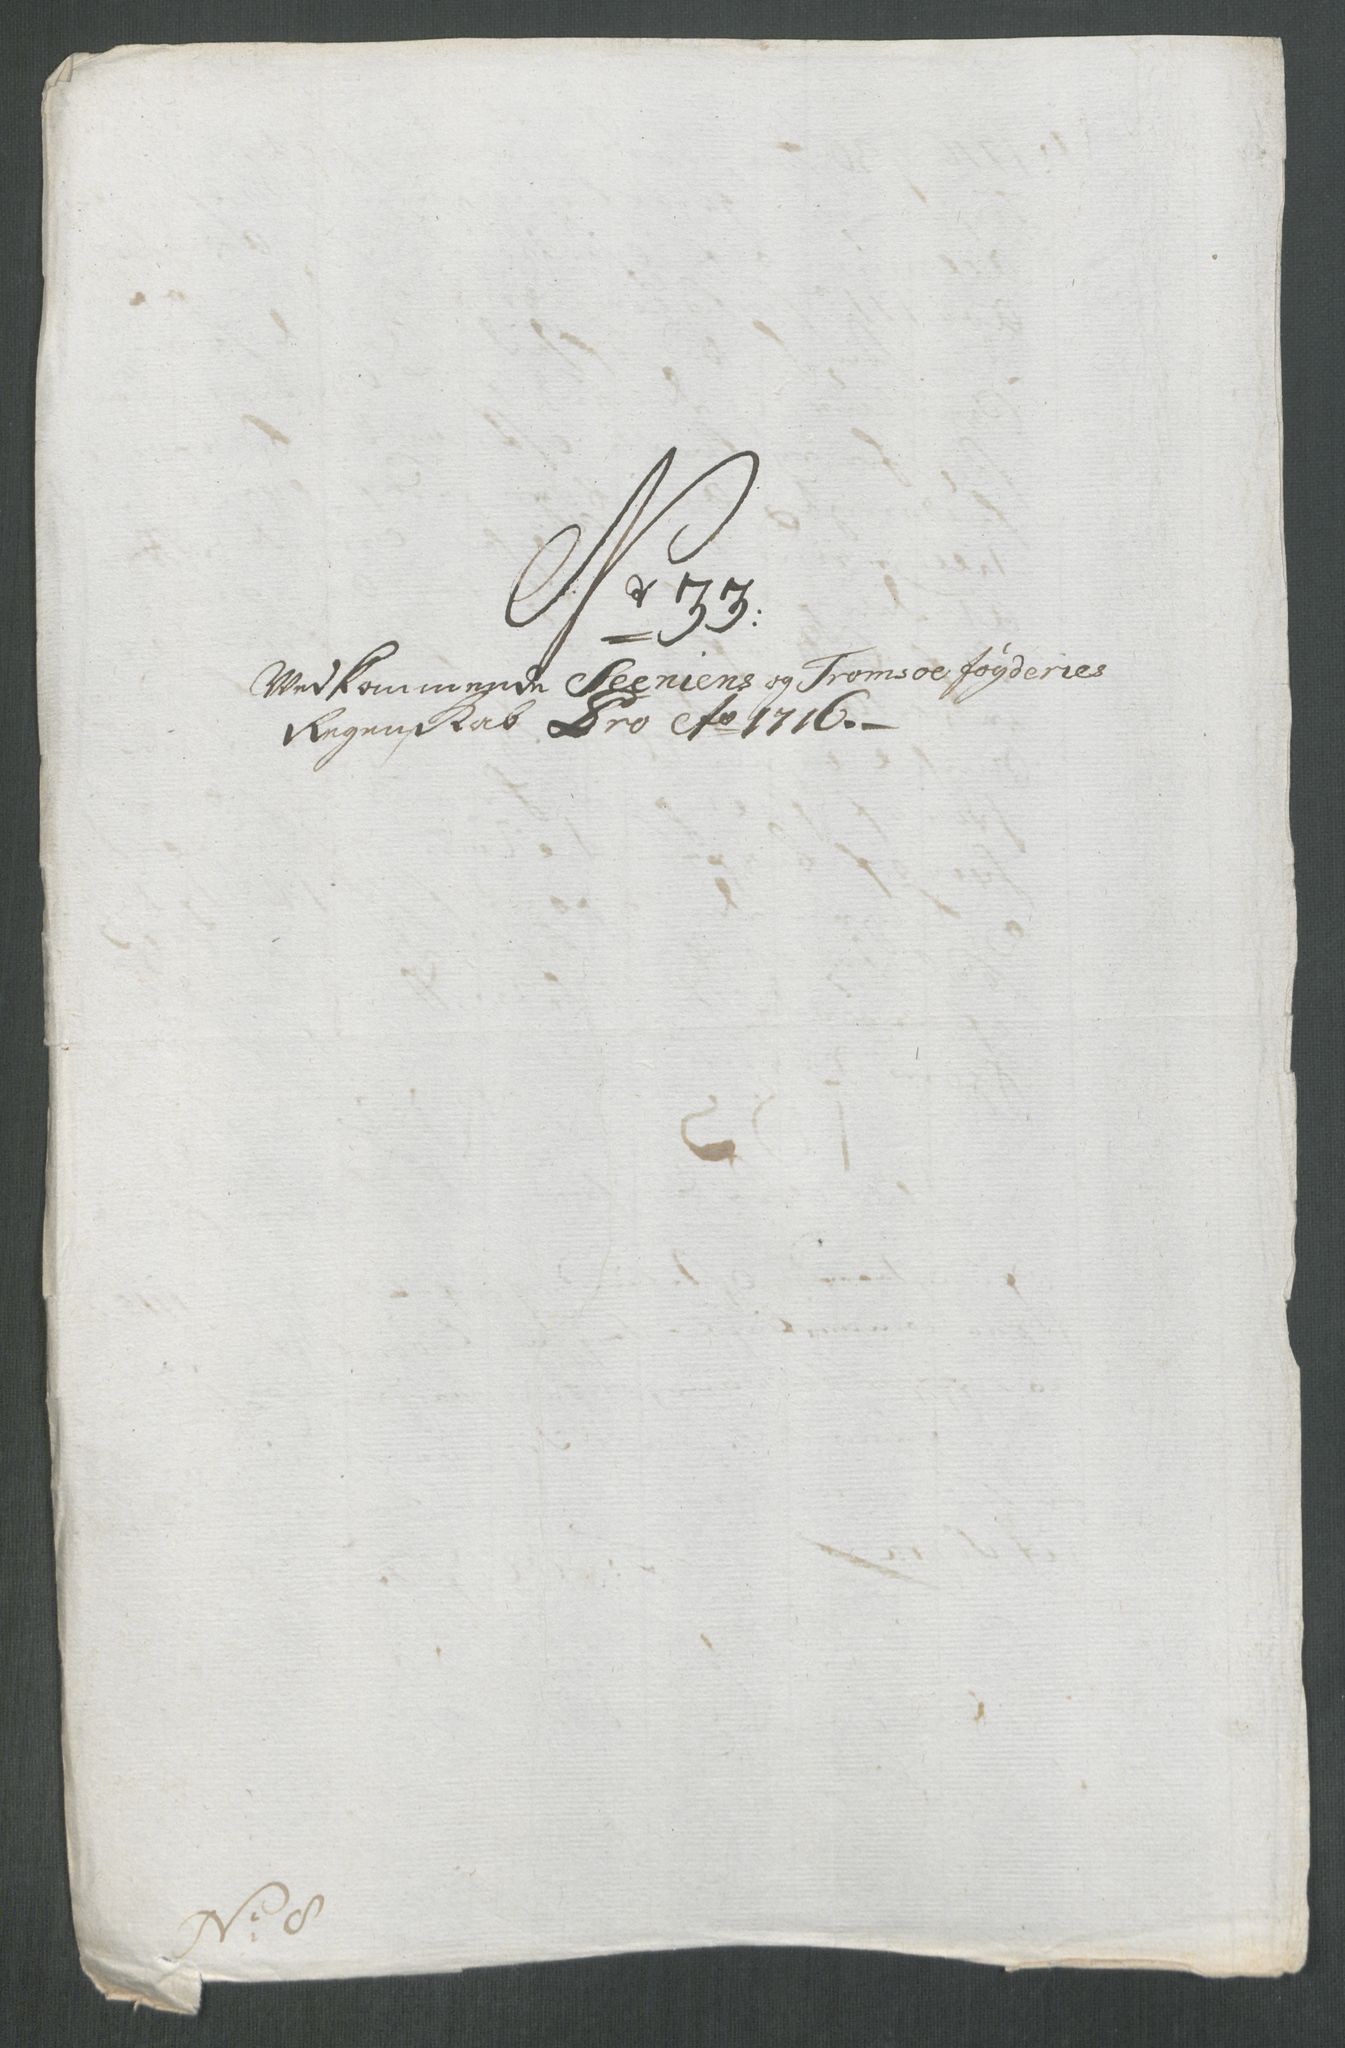 Nr 33:
Wedkommende Seeniens og Tromsoe føyderies
Regenskab Pro Ao 1716.
No: 8